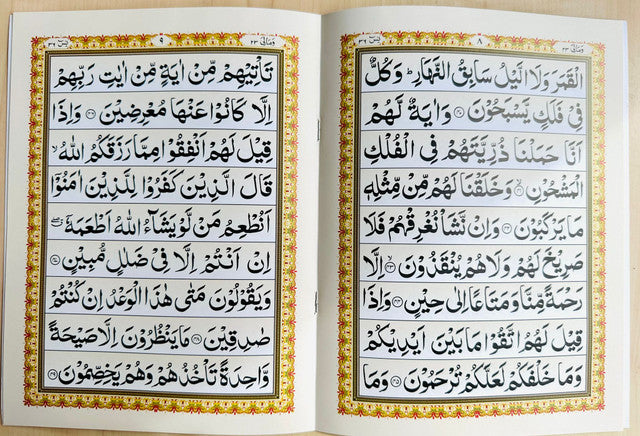 وَمَالِیَ ٢٣
٨
يٰسٓ ٣٦
الْقَمَرَ وَلَا الَّيْلُ سَابِقُ النَّهَارِ ؕ وَكُلٌّ
فِيْ فَلَكٍ يَّسْبَحُوْنَ ﴿٤٠﴾ وَاٰيَةٌ لَّهُمْ
اَنَّا حَمَلْنَا ذُرِّيَّتَهُمْ فِي الْفُلْكِ
الْمَشْحُوْنِ ﴿٤١﴾ وَخَلَقْنَا لَهُمْ مِّنْ مِّثْلِهٖ
مَا يَرْكَبُوْنَ ﴿٤٢﴾ وَاِنْ نَّشَاْ نُغْرِقْهُمْ فَلَا
صَرِيْخَ لَهُمْ وَلَا هُمْ يُنْقَذُوْنَ ﴿٤٣﴾ اِلَّا
رَحْمَةً مِّنَّا وَمَتَاعًا اِلٰى حِيْنٍ ﴿٤٤﴾ وَاِذَا
قِيْلَ لَهُمُ اتَّقُوْا مَا بَيْنَ اَيْدِيْكُمْ
وَمَا خَلْفَكُمْ لَعَلَّكُمْ تُرْحَمُوْنَ ﴿٤٥﴾ وَمَا
وَمَالِیَ ٢٣
٩
يٰسٓ ٣٦
تَاْتِيْهِمْ مِّنْ اٰيَةٍ مِّنْ اٰيٰتِ رَبِّهِمْ
اِلَّا كَانُوْا عَنْهَا مُعْرِضِيْنَ ﴿٤٦﴾ وَاِذَا
قِيْلَ لَهُمْ اَنْفِقُوْا مِمَّا رَزَقَكُمُ اللّٰهُ ۙ
قَالَ الَّذِيْنَ كَفَرُوْا لِلَّذِيْنَ اٰمَنُوْۤا
اَنُطْعِمُ مَنْ لَّوْ يَشَآءُ اللّٰهُ اَطْعَمَهٗۤ ۖ
اِنْ اَنْتُمْ اِلَّا فِيْ ضَلٰلٍ مُّبِيْنٍ ﴿٤٧﴾
وَيَقُوْلُوْنَ مَتٰى هٰذَا الْوَعْدُ اِنْ كُنْتُمْ
صٰدِقِيْنَ ﴿٤٨﴾ مَا يَنْظُرُوْنَ اِلَّا صَيْحَةً
وَّاحِدَةً تَاْخُذُهُمْ وَهُمْ يَخِصِّمُوْنَ ﴿٤٩﴾